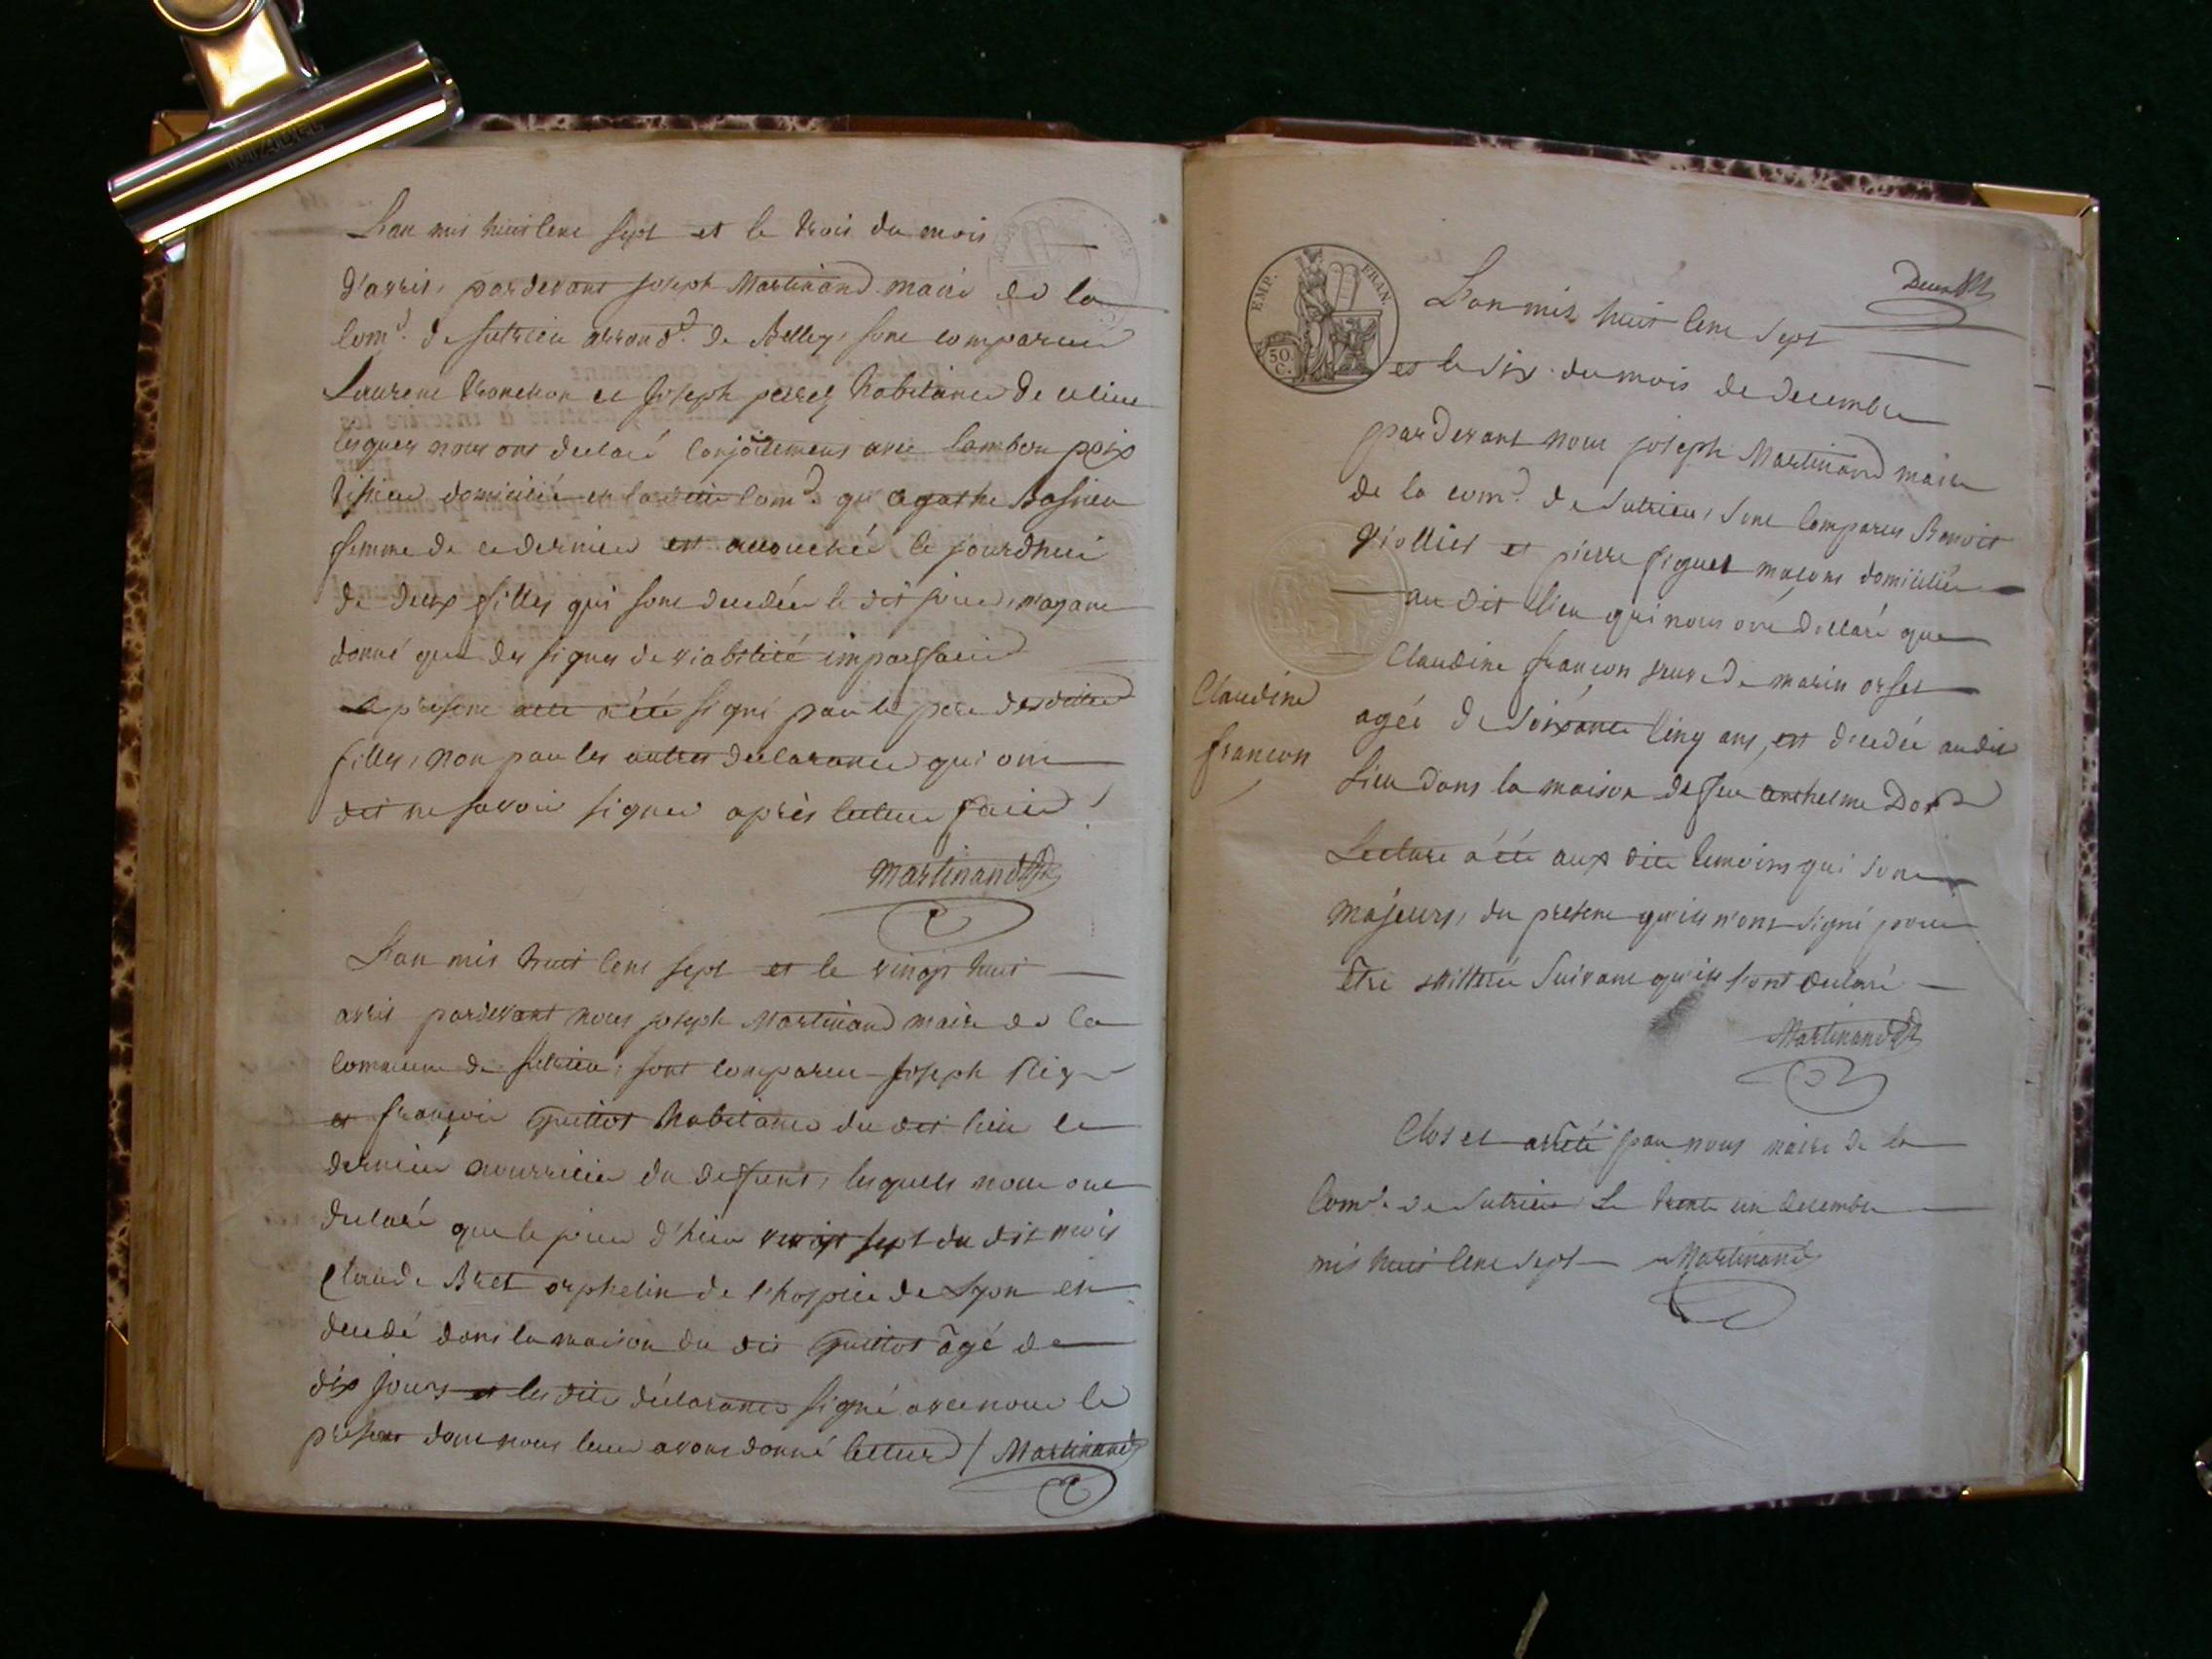 L'an mil huit cent sept et le trois du mois
d'avril, pardevant joseph Martinand maire de la
Com.e de sutrieu arrond.t de Belley, sont comparus
Laurent tronchon et joseph perret habitants de ce lieu
lesquels nous ont declaré conjoitement avec
domicilié en la dite Com.e qu'agathe
femme de ce dernier est accouchée ce jourdhui
de deux filles qui sont decedées le dit jour, n'ayant
donné que des signes de viabilité imparfaits
le present acte a été signé par le pere des dites
filles, non par les autres declarants qui ont
dit ne savoir signer après lecture faite /
Martinand
L'an mil huit cent sept et le vingt huit
avril pardevant nous joseph Martinand maire de la
commune de sutrieu, sont comparus joseph
et françois Guillot habitants du dit lieu ce
dernier nourricier du defunt, lesquels nous ont
declaré que le jour d'hier vingt sept du dit mois
Claude Bret orphelin de l'hospice de Lyon est
decedé dans la maison du dit Guillot âgé de
dix jours et les dits déclarants signé avec nous le
present dont nous leur avons donné lecture / Martinand
EMP. FRAN.
50. C.
Deux
L'an mil huit cent sept
et le six du mois de decembre
pardevant nous joseph Martinand maire
de la com.e de sutrieu, sont comparus Benoit
Viollier et pierre figuet maçons domiciliés
au dit lieu qui nous ont déclaré que
Claudine françon veuve de marin orset
Claudine
françon
agée de soixante cinq ans, est decedée audit
lieu dans la maison de feu anthelme
Lecture a été aux dits temoins qui sont
majeurs, du present qu'ils n'ont signé pour
être illitérés suivant qu'ils l'ont declaré
Martinand
Clos et arrêté par nous maire de la
Com.e de sutrieu Le trente un decembre
mil huit cent sept Martinand